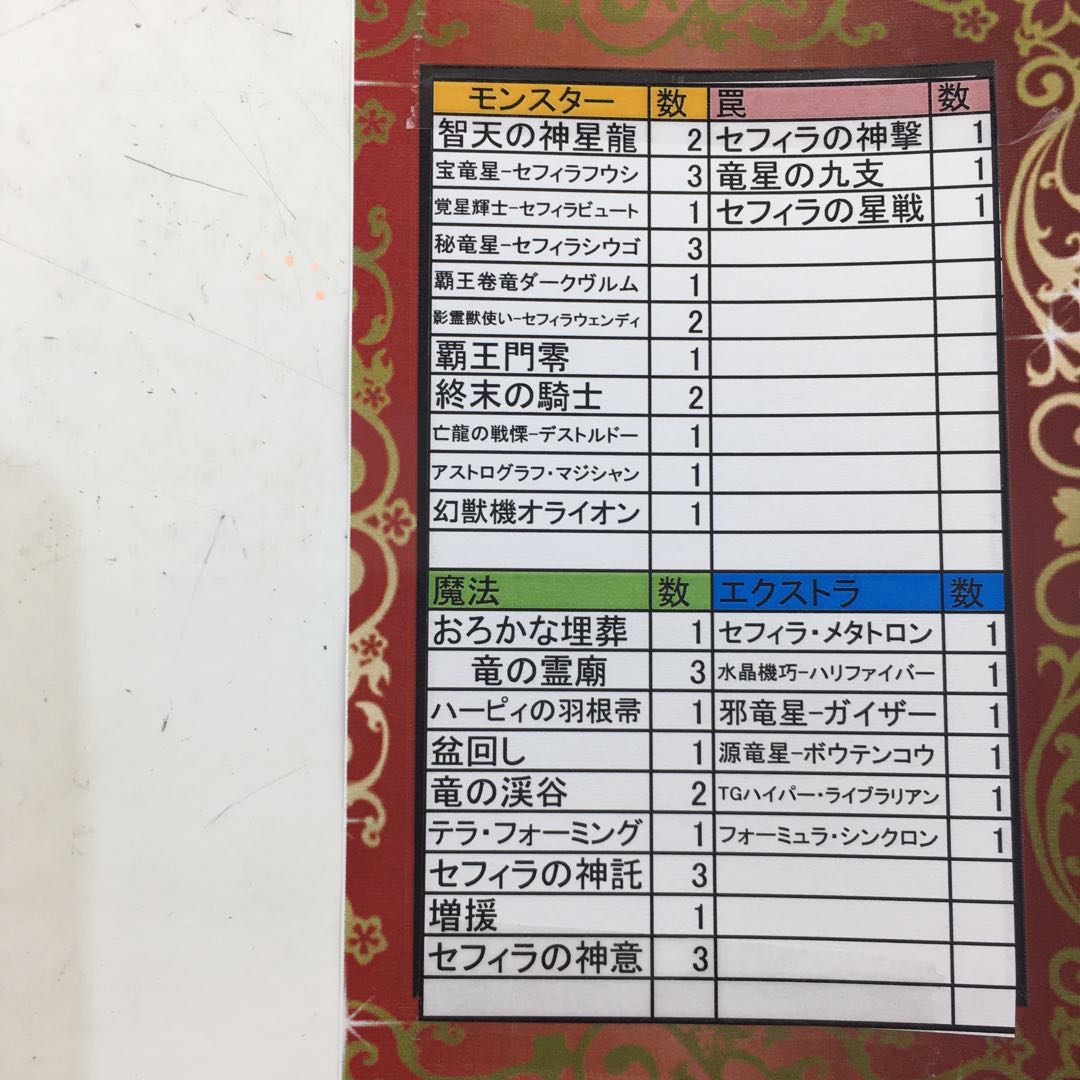 モンスター 数 罠 数
智天の神星龍 2 セフィラの神撃 1
宝竜星-セフィラフウシ 3 竜星の九支 1
覚星輝士-セフィラビュート 1 セフィラの星戦 1
秘竜星-セフィラシウゴ 3
覇王眷竜ダークヴルム 1
影霊獣使い-セフィラウェンディ 2
覇王門零 1
終末の騎士 2
亡龍の戦慄-デストルドー 1
アストログラフ・マジシャン 1
幻獣機オライオン 1
魔法 数 エクストラ 数
おろかな埋葬 1 セフィラ・メタトロン 1
竜の霊廟 3 水晶機巧-ハリファイバー 1
ハーピィの羽根帚 1 邪竜星-ガイザー 1
盆回し 1 源竜星-ボウテンコウ 1
竜の渓谷 2 TGハイパー・ライブラリアン 1
テラ・フォーミング 1 フォーミュラ・シンクロン 1
セフィラの神託 3
増援 1
セフィラの神意 3